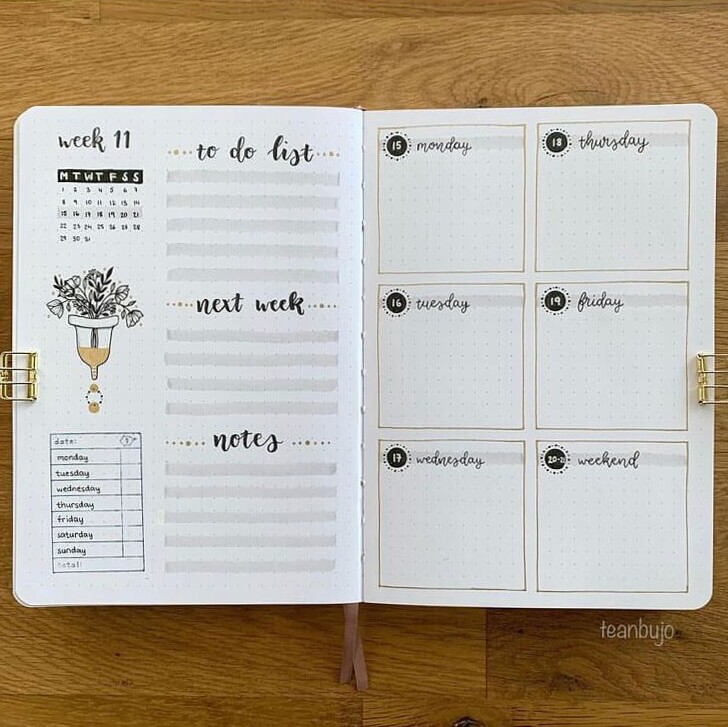 week 11
M T W T F S S
1 2 3 4 5 6 7
8 9 10 11 12 13 14
15 16 17 18 19 20 21
22 23 24 25 26 27 28
29 30 31
date:
monday
tuesday
wednesday
thursday
friday
saturday
sunday
total:
to do list
next week
notes
15 monday
16 tuesday
17 wednesday
18 thursday
19 friday
20-21 weekend
teanbujo